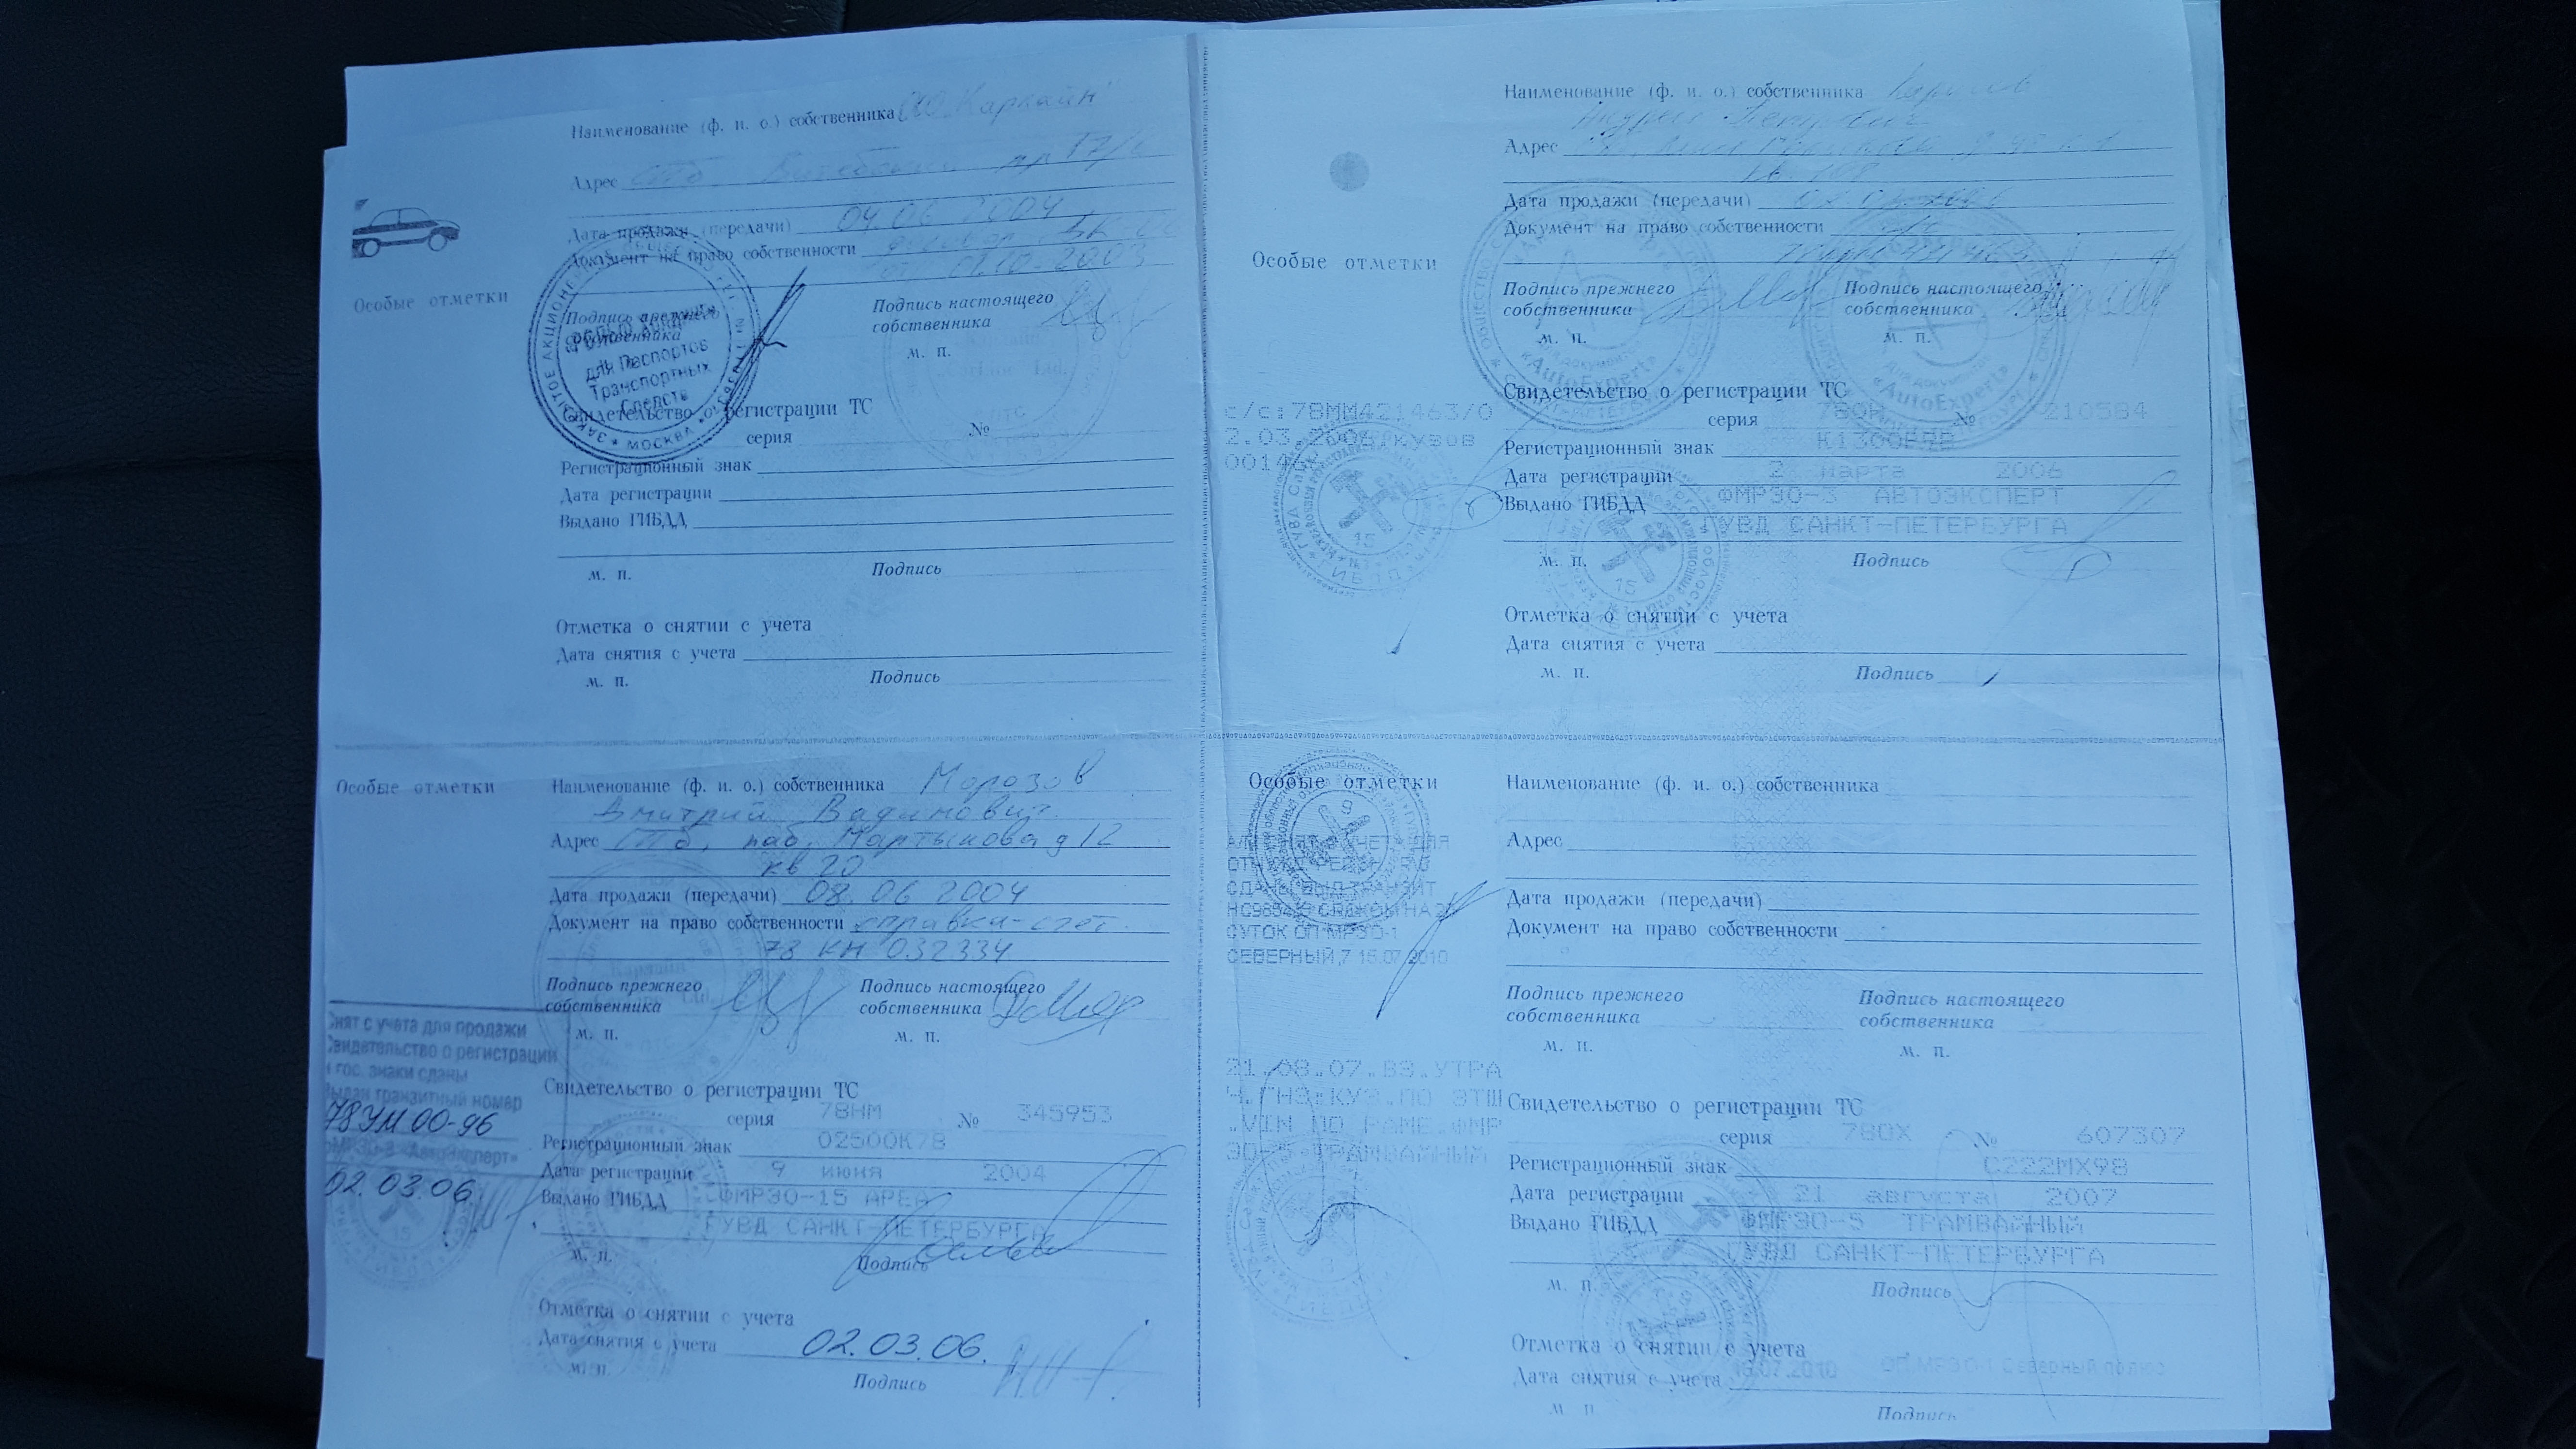 Наименование (ф. и. о.) собственника "Карлайн"
Адрес
Дата продажи (передачи) 04.06 2004
Документ на право собственности договор
от 01.10.2003
Особые отметки
Подпись прежнего собственника
Подпись настоящего собственника
м. п.
для Паспортов
Транспортных
Средств
МОСКВА
Свидетельство о регистрации ТС
серия №
Регистрационный знак
Дата регистрации
Выдано ГИБДД
м. п. Подпись
Отметка о снятии с учета
Дата снятия с учета
м. п. Подпись
Наименование (ф. и. о.) собственника
Андрей Петрович
Адрес
Дата продажи (передачи)
Документ на право собственности
Особые отметки
Подпись прежнего собственника
Подпись настоящего собственника
м. п. м. п.
«AutoExpert» «AutoExpert»
с/с:78ММ421463/0
2.03.2006 кузов
Свидетельство о регистрации ТС
серия № 210584
Регистрационный знак
Дата регистрации 2 марта 2006
Выдано ГИБДД ФМРЭО-3 АВТОЭКСПЕРТ
ГУВД САНКТ-ПЕТЕРБУРГА
м. п. Подпись
Отметка о снятии с учета
Дата снятия с учета
м. п. Подпись
Особые отметки
Наименование (ф. и. о.) собственника Морозов
Дмитрий Вадимович
Адрес СПб, наб. Мартынова д 12
кв 20
Дата продажи (передачи) 08.06 2004
Документ на право собственности справка-счет
78 КН 032334
Подпись прежнего собственника
Подпись настоящего собственника
м. п. м. п.
Снят с учета для продажи
Свидетельство о регистрации
и гос. знаки сданы
Выдан транзитный номер
78УМ 00-96
ФМРЭО-3 «Автоэксперт»
02.03.06.
Свидетельство о регистрации ТС
серия 78НМ № 345953
Регистрационный знак О250ОК78
Дата регистрации 9 июня 2004
Выдано ГИБДД ФМРЭО-15 АРЕА
ГУВД САНКТ-ПЕТЕРБУРГА
м. п. Подпись
Отметка о снятии с учета
Дата снятия с учета 02.03.06.
м. п. Подпись
Особые отметки
Наименование (ф. и. о.) собственника
Адрес
Дата продажи (передачи)
Документ на право собственности
Подпись прежнего собственника
Подпись настоящего собственника
м. п. м. п.
СУТОК ОП МРЭО-1
СЕВЕРНЫЙ,7 16.07.2010
21.08.07.ВЗ.УТРА
Ч.ГНЗ:КУЗ.ПО ЭТШ
.VIN ПО РАМЕ.ФМР
ЭО-5 ТРАМВАЙНЫЙ
Свидетельство о регистрации ТС
серия 78ОХ № 607307
Регистрационный знак С222МХ98
Дата регистрации 21 августа 2007
Выдано ГИБДД ФМРЭО-5 ТРАМВАЙНЫЙ
ГУВД САНКТ-ПЕТЕРБУРГА
м. п. Подпись
Отметка о снятии с учета
Дата снятия с учета 16.07.2010
м. п. Подпись